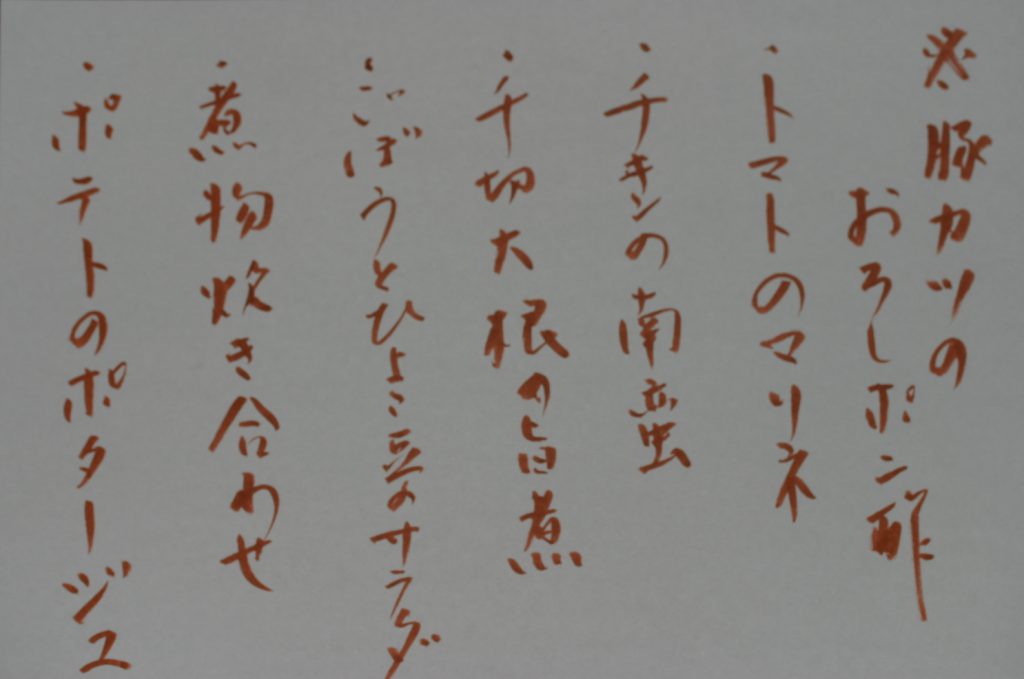 ※豚カツの
おろしポン酢
・トマトのマリネ
・チキンの南蛮
・千切大根の旨煮
・ごぼうとひよこ豆のサラダ
・煮物炊き合わせ
・ポテトのポタージュ